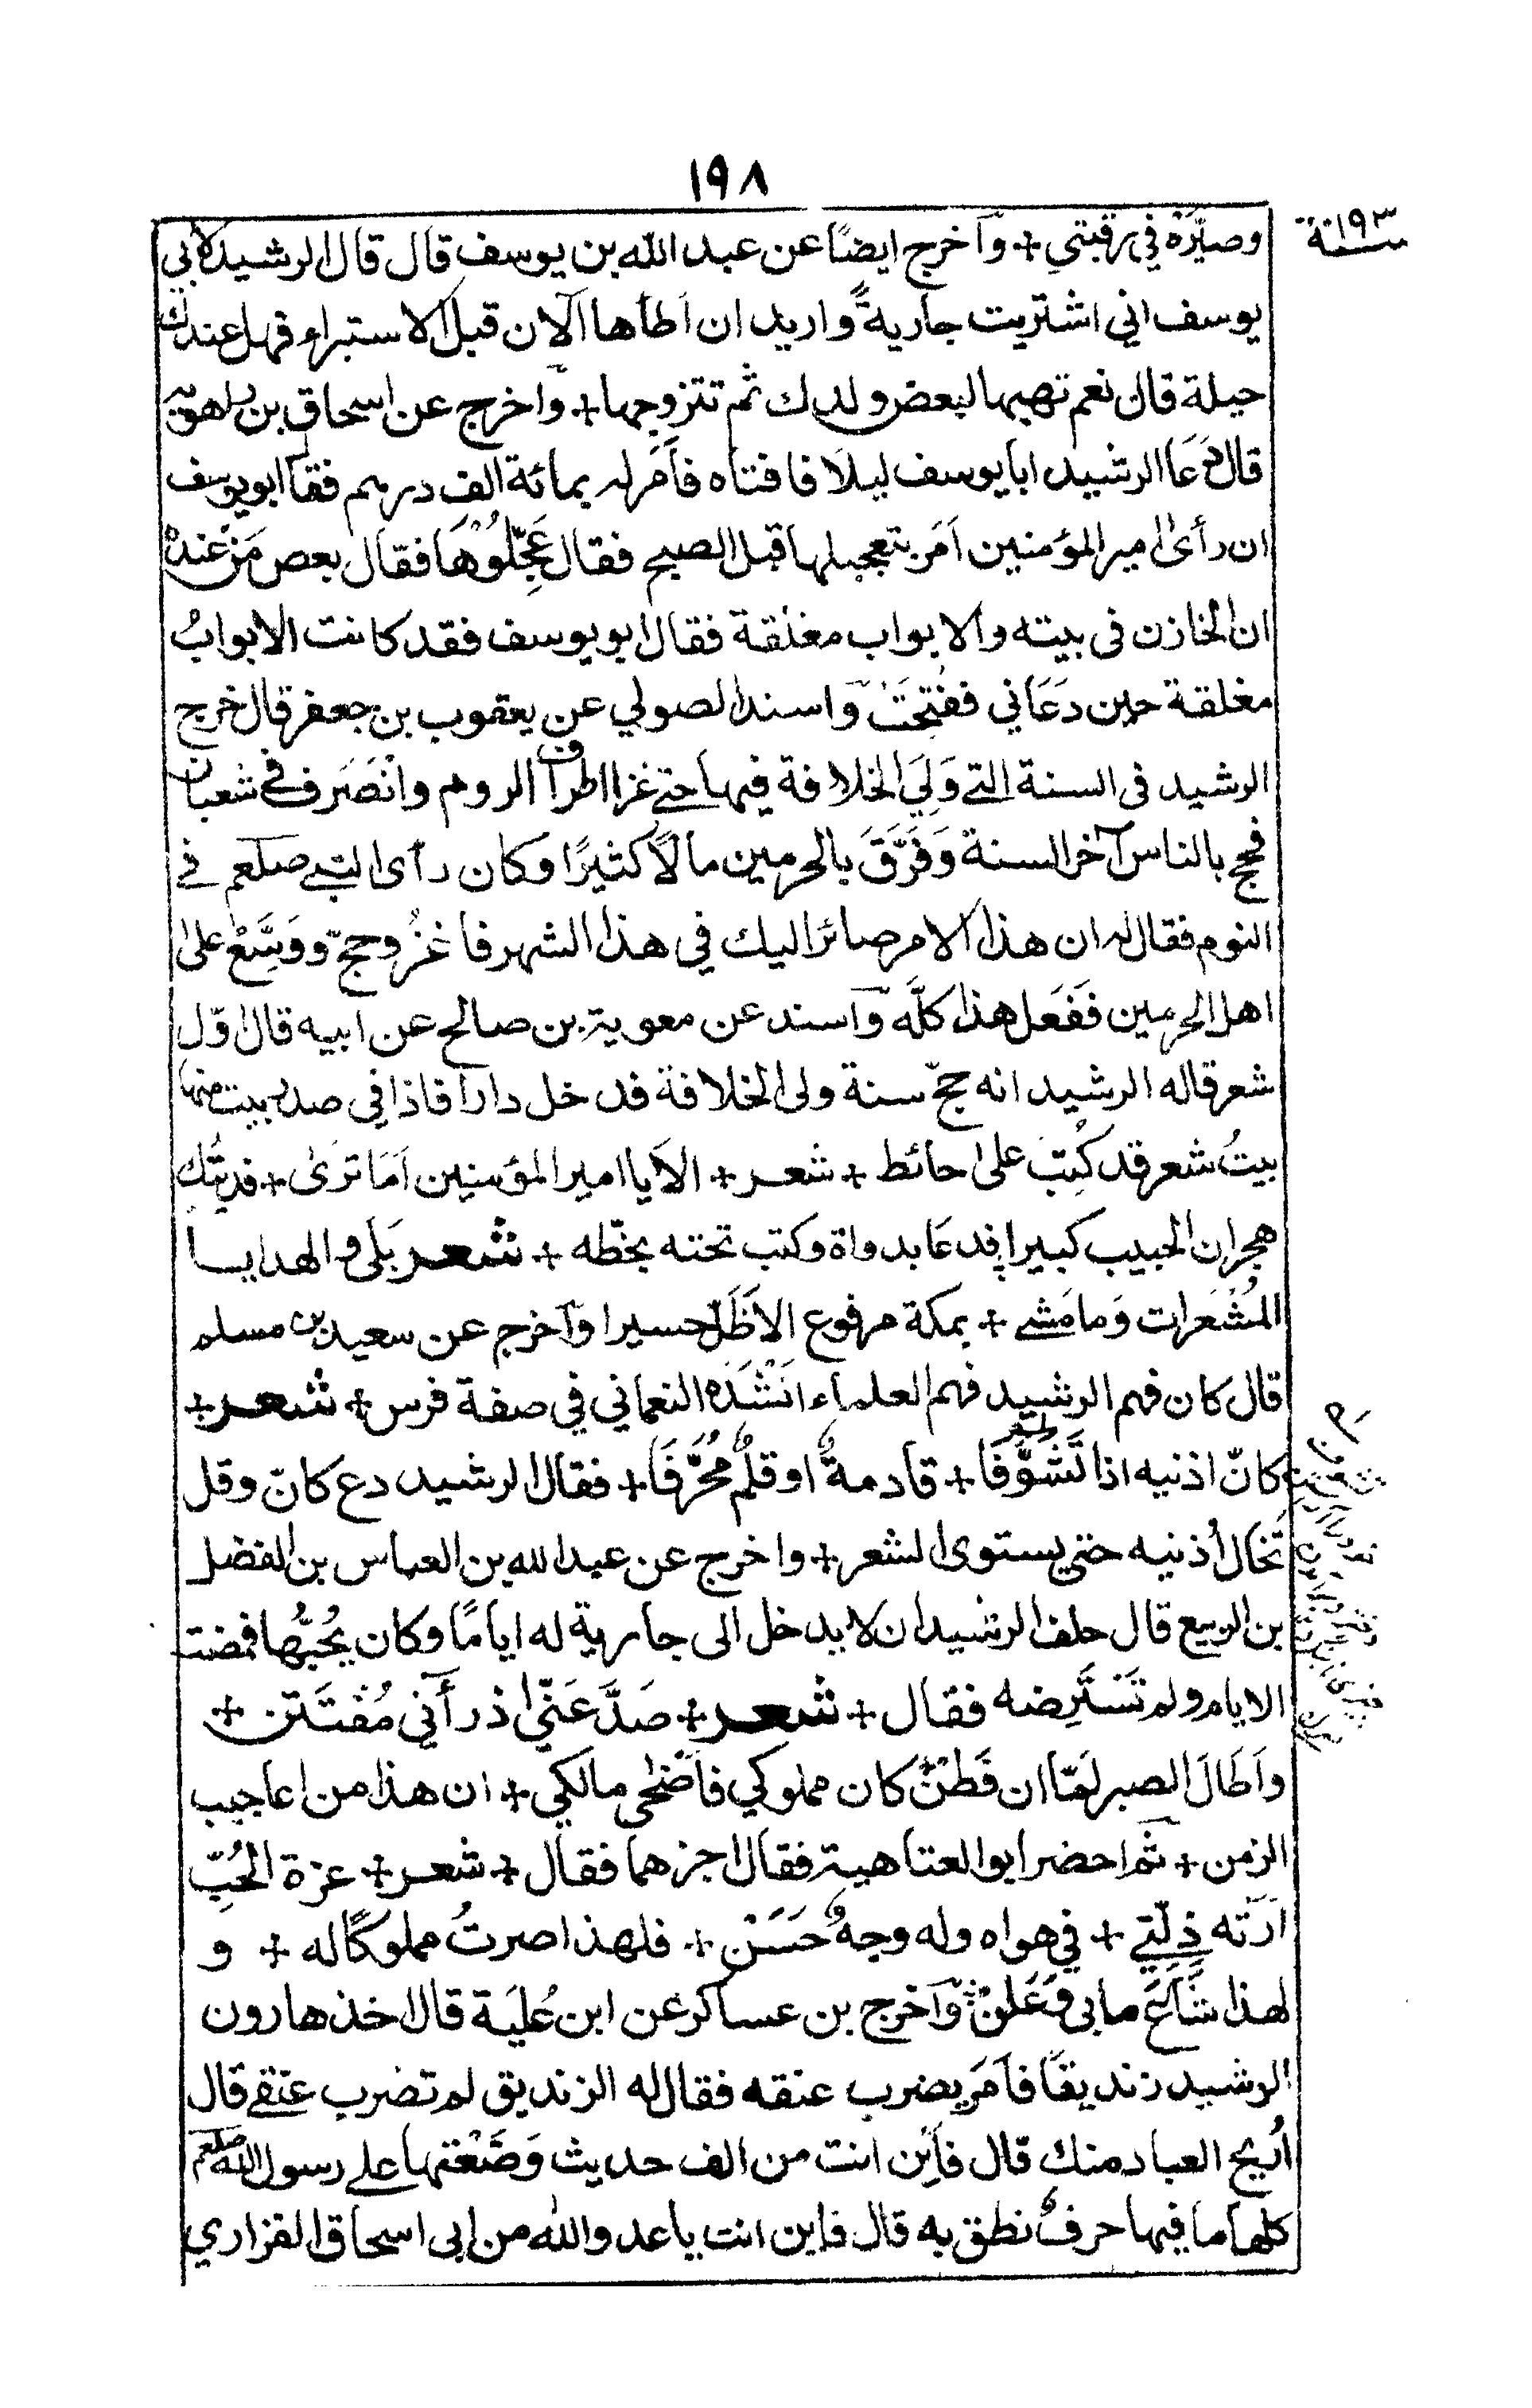 ١٩٨
سنة ١٩٣
وصيّره في رقبتي + وآخرج ايضًا عن عبد الله بن يوسف قال قال الرشيد لابي
يوسف اني اشتريت جاريةً واريد ان اَطأها الآن قبل الاستبراء فهل عندك
حيلة قال نعم تهبها لبعض ولدك ثم تتزوجها + وآخرج عن اسحاق بن راهويه
قال دَعَا الرشيد ابا يوسف ليلًا فافتاه فاَمَر له بمائة الف درهم فقال ابو يوسف
ان رأى امير المؤمنين اَمَر بتعجيلها قبل الصبح فقال عَجِّلُوْهَا فقال بعض مَنْ عنده
ان الخازن في بيته والابواب مغلقة فقال ابو يوسف فقد كانت الابوابُ
مغلقة حين دَعَاني ففُتِحَتْ وآسند الصولي عن يعقوب بن جعفر قال خرج
الرشيد في السنة التي وَلِيَ الخلافة فيها حتى غزا اطراف الروم وانْصَرف في شعبان
فحج بالناس آخر السنة وَفَرَّقَ بالحرمين مالًا كثيرًا وكان رأى النبي صلعم في
النوم فقال له ان هذا الامر صائر اليك في هذا الشهر فاغزُ وحجّ ووَسِّعْ على
اهل الحرمين ففَعَل هذا كلَّه وآسند عن معوية بن صالح عن ابيه قال اوّل
شعر قاله الرشيد انه حجّ سنة ولى الخلافة فدخل دارا فاذا في صدر بيت منها
بيتُ شعر قد كُتِبَ على حائط + شعر + الا يا امير المؤمنين اَمَا ترى + فديتُك
هجران الحبيب كبيرا فدعَا بدواة وكتب تحته بخطّه + شعر بَلى والهدايا
المُشْعَرات وَما مَشى + بمكة مرفوع الاَظَلّ حسيرا وآخرج عن سعيد بن مسلم
قال كان فهم الرشيد فهم العلماء اَنْشَدَه النعماني في صفة فرس + شعر +
كانّ اذنيه اذا تَشَوَّفَا + قادمةً او قلمٌ مُحَرَّفَا + فقال الرشيد دع كانّ وقل
تَخال اُذنيه حتى يستوى الشعر + واخرج عن عبد الله بن العباس بن الفضل
بن الربيع قال حلف الرشيد ان لا يدخل الى جارية له ايامًا وكان يُحبُّها فمضت
الايام ولم تَسْتَرضه فقال + شعر + صَدَّ عَنّي اذ رأَني مُفْتَتن +
واَطَالَ الصبر لمّا ان فَطَنْ كان مملوكي فاَضْحٰى مالكي + ان هذا من اعاجيب
الزمن + ثم احضر ابو العتاهية فقال اجزهما فقال + شعر + عزة الحُبِّ
اَرَتْه ذِلّتي + في هواه وله وجهٌ حَسَنْ + فلهذا صرتُ مملوكًا له + و
لهذا شَاعَ مابي وعَلَنْ وآخرج بن عساكر عن ابن عُليَة قال اخذ هارون
الرشيد زنديقًا فاَمَر بضرب عنقه فقال له الزنديق لم تضرب عنقي قال
اُريح العباد منك قال فاَيْن انت من الف حديث وَضَعْتها على رسول الله صلعم
كلها ما فيها حرفٌ نطق به قال فاين انت يا عدو الله من ابي اسحاق الفزاري